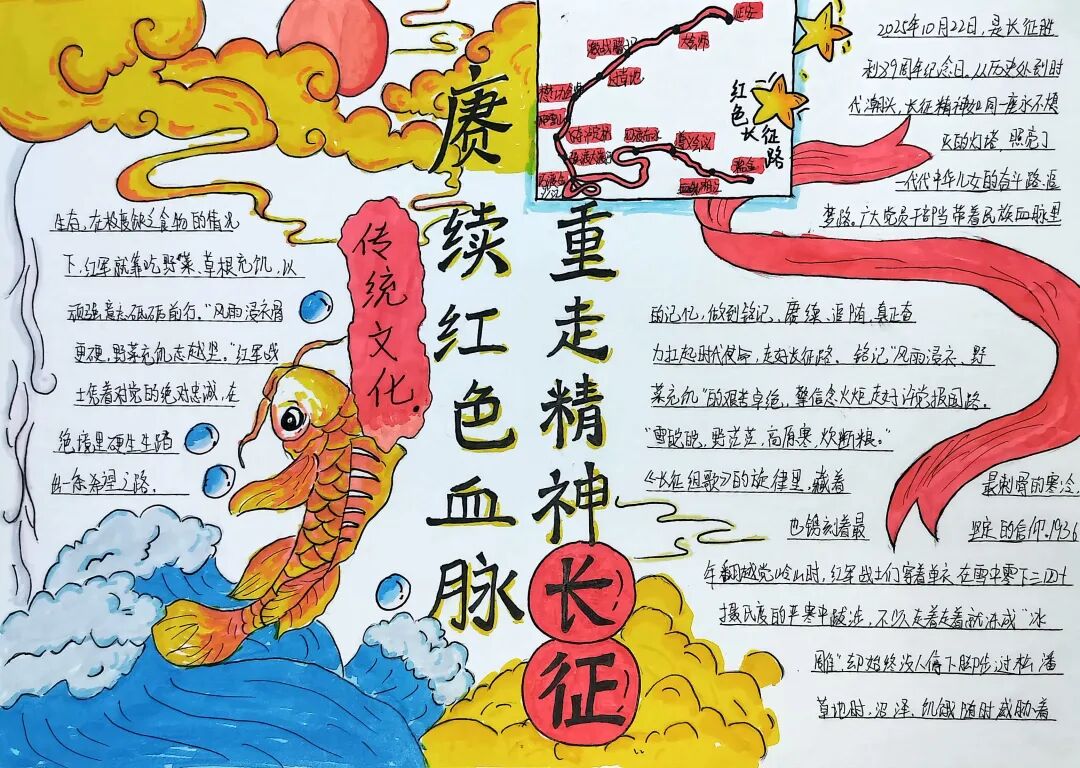 赓续红色血脉
重走精神长征
传统文化
红色长征路
大会师
过草地
遵义会议
瑞金
2025年10月22日,是长征胜
利89周年纪念日。从历史处到时
代潮头,长征精神如同一座永不熄
灭的灯塔,照亮了
一代代中华儿女的奋斗路、追
梦路。广大党员干部当带着民族血脉里
的记忆,做到铭记、赓续、追随,真正奋
力扛起时代使命,走好长征路。铭记“风雨浸衣、野
菜充饥”的艰苦卓绝,擎信念火炬走好许党报国路。
“雪皑皑,野茫茫,高原寒,炊断粮。”
《长征组歌》的旋律里,藏着
最刺骨的寒冷,
也镌刻着最
坚定的信仰。1936
年翻越党岭山时,红军战士们穿着单衣在雪中零下三四十
摄氏度的严寒中跋涉,不少走着走着就冻成“冰
雕”却始终没人停下脚步,过松潘
草地时,沼泽、饥饿随时威胁着
生命,在极度缺乏食物的情况
下,红军就靠吃野菜、草根充饥,以
顽强意志砥砺前行。“风雨浸衣骨
更硬,野菜充饥志越坚。”红军战
士凭着对党的绝对忠诚,在
绝境里硬生生踏
出一条希望之路。